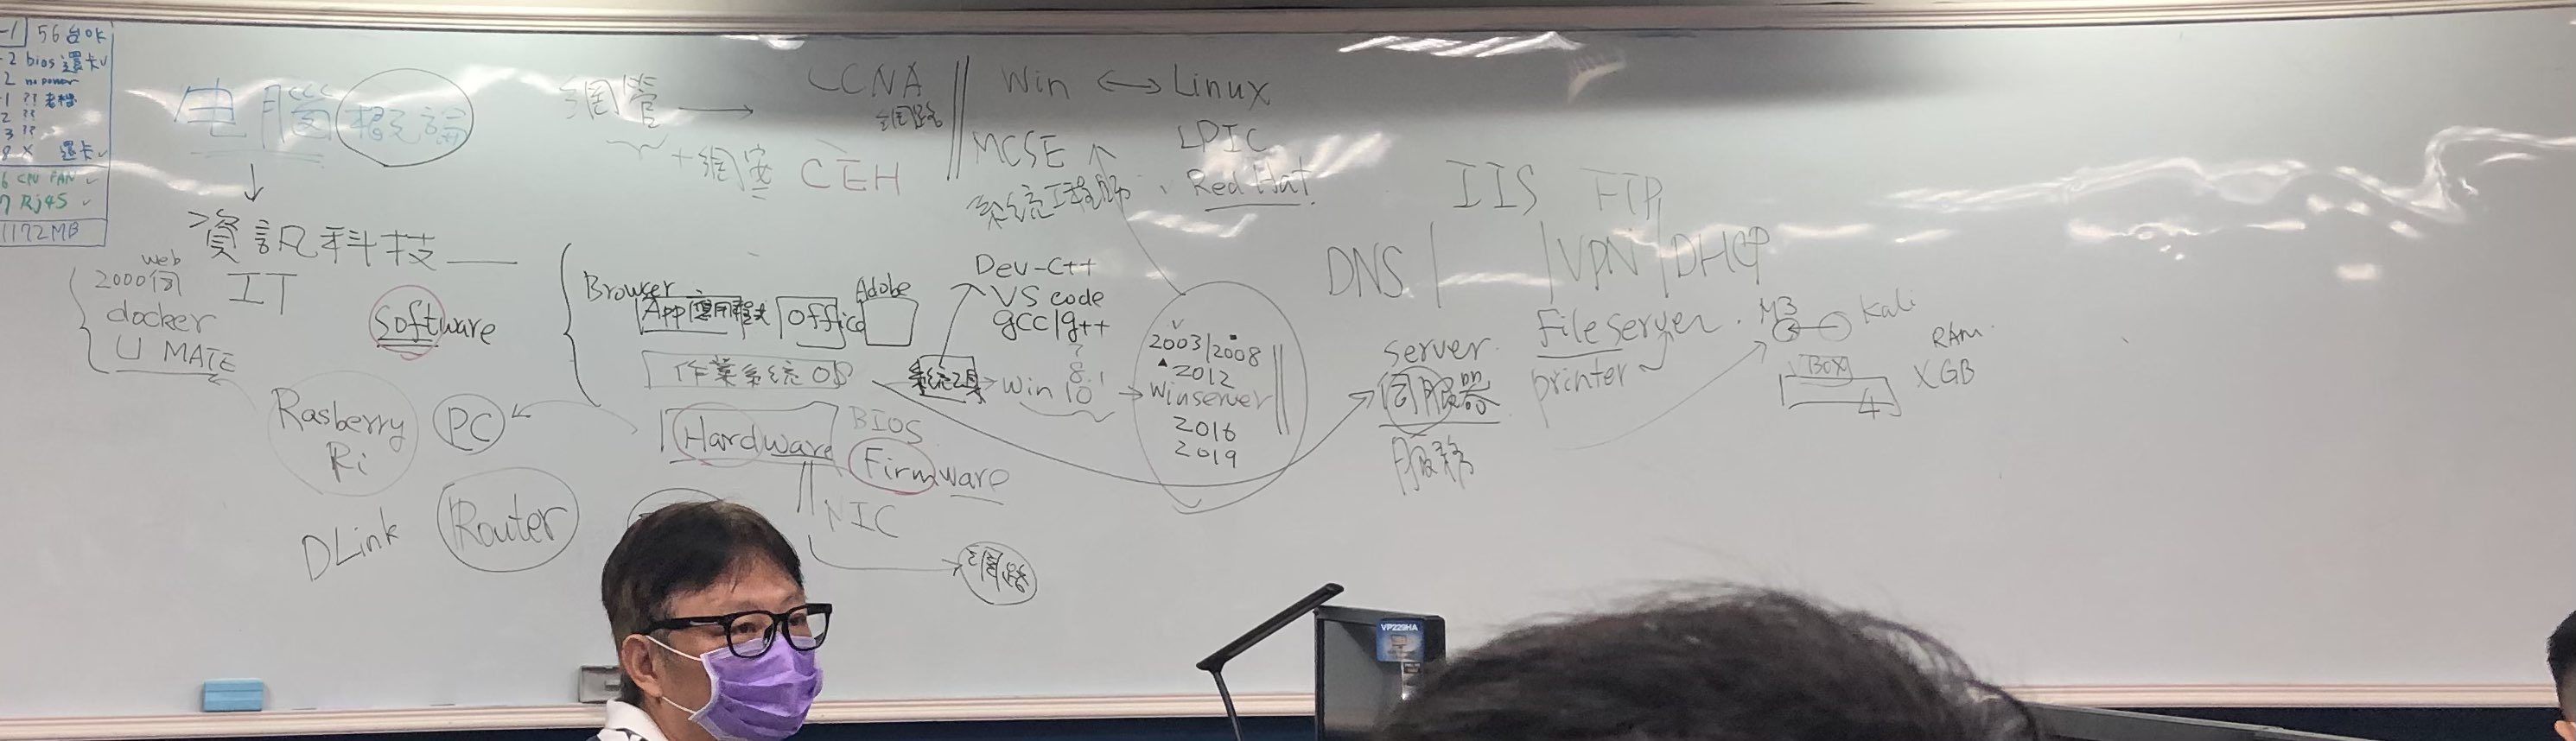 56台OK
bios 還卡✓
no power
?? 老檔
??
??
X 還卡✓
CPU FAN ✓
Rj45 ✓
1172MB
电腦概論
資訊科技
IT
web
2000個
docker
U MATE
Software
Rasberry
Pi
PC
DLink
Router
網管 → CCNA
網路
+網安 CEH
Win ↔ Linux
MCSE
LPIC
系統工程師、Red Hat
Browser
App應用程式
Office
Adobe
作業系統 OS
Hardware
BIOS
Firmware
NIC
網路
Dev-C++
VS code
gcc/g++
系統工具
7
8
win 10
2003/2008
2012
Winserver
2016
2019
IIS FTP
DNS | | VPN | DHCP
File server
printer
server
伺服器
服務
M3
Kali
BOX
4
RAM
XGB
VP229HA